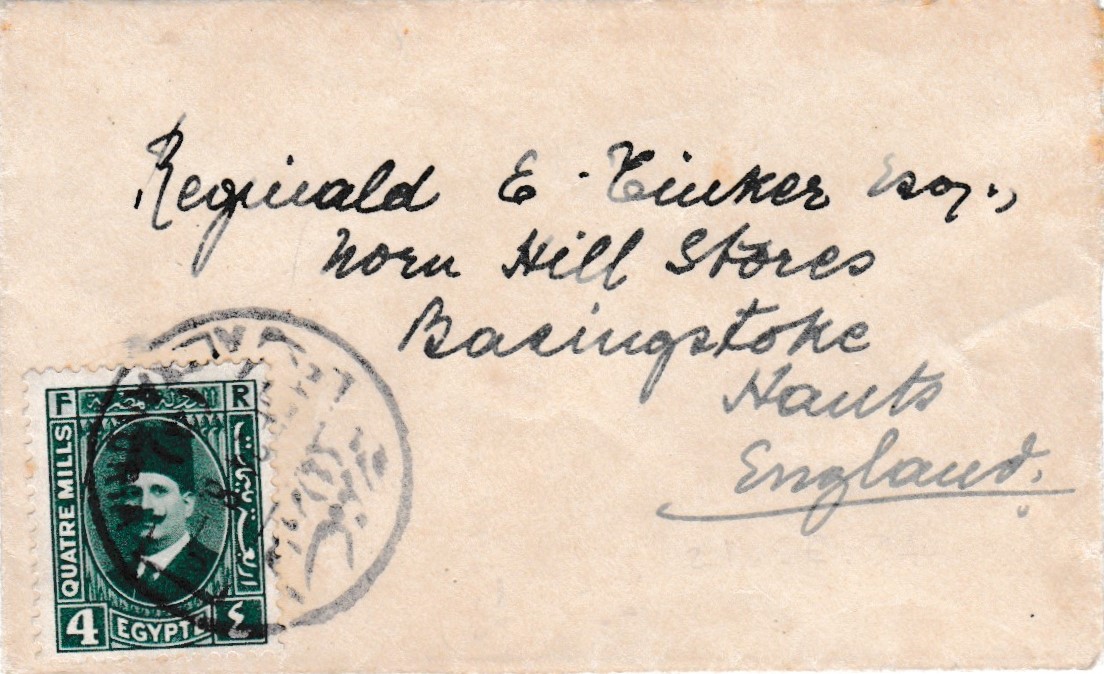 Reginald E. Tinker Esq.,
Norn Hill Stores
Basingstoke
Hants
England.
F R
QUATRE MILLS
4 EGYPTE ٤